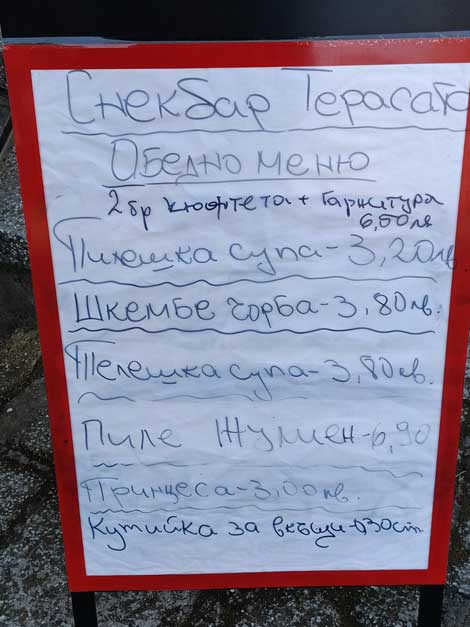 Снекбар Терасата
Обедно меню
2 бр кюфтета + Гарнитура
6,50лв
Пилешка супа - 3,20лв.
Шкембе чорба - 3,80лв.
Телешка супа - 3,80лв.
Пиле Жулиен - 6,90
Принцеса - 3,00лв.
Кутийка за вкъщи - 030ст.